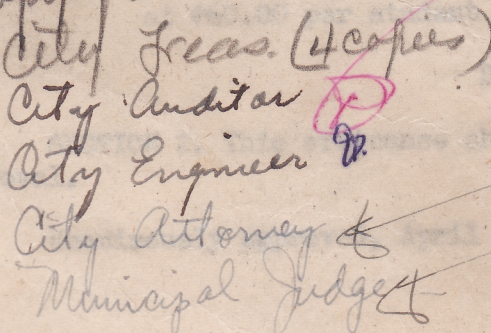 City Treas. (4 copies)
City Auditor
City Engineer
City Attorney
Municipal Judge